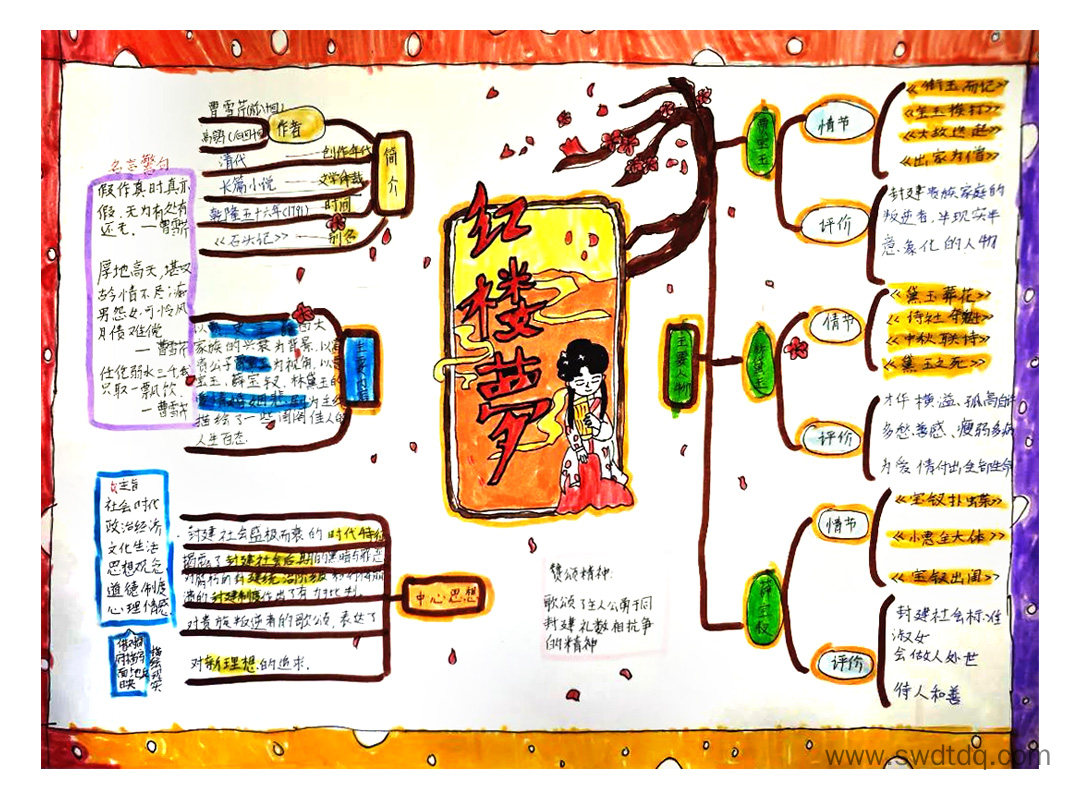 红楼梦
简介
作者
曹雪芹(前八十回)
清代
创作年代
长篇小说
文学体裁
乾隆五十六年(1791)
时间
《石头记》
别名
假作真时真亦
假,无为有处有
还无。—曹雪芹
厚地高天,堪叹
古今情不尽;痴
男怨女,可怜风
月债难偿
—曹雪芹
任他弱水三千,我
只取一瓢饮。
—曹雪芹
家族的兴衰为背景,以富
贵公子贾宝玉为视角,以贾
宝玉、薛宝钗、林黛玉的
描绘了一些闺阁佳人的
人生百态
主旨
社会时代
政治经济
文化生活
思想观念
道德制度
心理情感
描绘现实
中心思想
封建社会盛极而衰的时代特征
揭露了封建社会后期的黑暗与罪恶
对腐朽的封建统治阶级
封建制度作出了有力批判。
对贵族叛逆者的歌颂,表达了
对新理想的追求。
赞颂精神:
歌颂了主人公勇于同
封建礼数相抗争
的精神
主要人物
贾宝玉
情节
《衔玉而记》
《宝玉挨打》
《出家为僧》
评价
封建贵族家庭的
叛逆者,半现实半
意象化的人物
林黛玉
情节
《黛玉葬花》
《中秋联诗》
《黛玉之死》
评价
才华横溢、孤高自许
多愁善感、瘦弱多病
为爱情付出全部生命
薛宝钗
情节
《宝钗扑蝶》
《小惠全大体》
《宝钗出闺》
评价
封建社会标准
淑女
会做人处世
待人和善
www.swdtdq.com